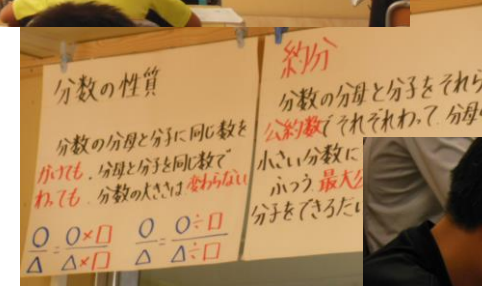 分数の性質
分数の分母と分子に同じ数を
かけても、分母と分子を同じ数で
わっても、分数の大きさは変わらない
○/△=○×□/△×□ ○/△=○÷□/△÷□
約分
分数の分母と分子をそれら
公約数でそれぞれわって、分母
小さい分数に
ふつう、最大公
分子をできるだけ